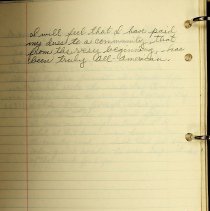 I will feel that I have paid
my dues to a community that
from the very beginning, has
been truly all-american.